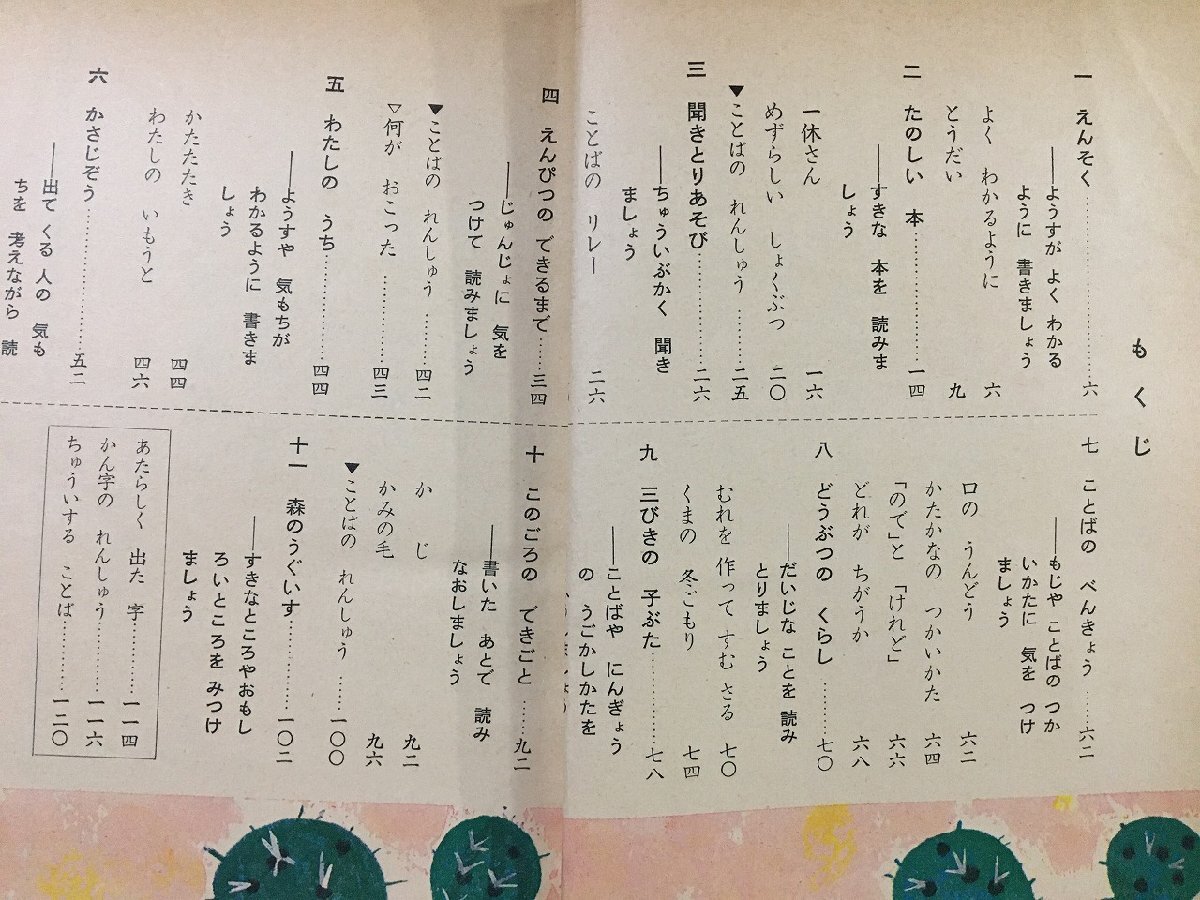 もくじ
一 えんそく……………六
――ようすが よく わかる
ように 書きましょう
よく わかるように 六
とうだい 九
二 たのしい 本……………一四
――すきな 本を 読みま
しょう
一休さん 一六
めずらしい しょくぶつ 二〇
▼ことばの れんしゅう……………二五
三 聞きとりあそび……………二六
――ちゅういぶかく 聞き
ましょう
ことばの リレー 二六
四 えんぴつの できるまで……三四
――じゅんじょに 気を
つけて 読みましょう
▼ことばの れんしゅう……四二
▽何が おこった……………四三
五 わたしの うち……………四四
――ようすや 気もちが
わかるように 書きま
しょう
かたたたき 四四
わたしの いもうと 四六
六 かさじぞう……………五二
――出て くる 人の 気も
ちを 考えながら 読
七 ことばの べんきょう……六二
――もじや ことばの つか
いかたに 気を つけ
ましょう
口の うんどう 六二
かたかなの つかいかた 六四
「ので」と 「けれど」 六六
どれが ちがうか 六八
八 どうぶつの くらし……七〇
――だいじな ことを 読み
とりましょう
むれを 作って すむ さる 七〇
くまの 冬ごもり 七四
九 三びきの 子ぶた……………七八
――ことばや にんぎょう
の うごかしかたを
十 このごろの できごと……九二
――書いた あとで 読み
なおしましょう
かじ 九二
かみの毛 九六
▼ことばの れんしゅう……一〇〇
十一 森のうぐいす……………一〇二
――すきなところやおもし
ろいところを みつけ
ましょう
あたらしく 出た 字……………一一四
かん字の れんしゅう……………一一六
ちゅういする ことば……………一二〇